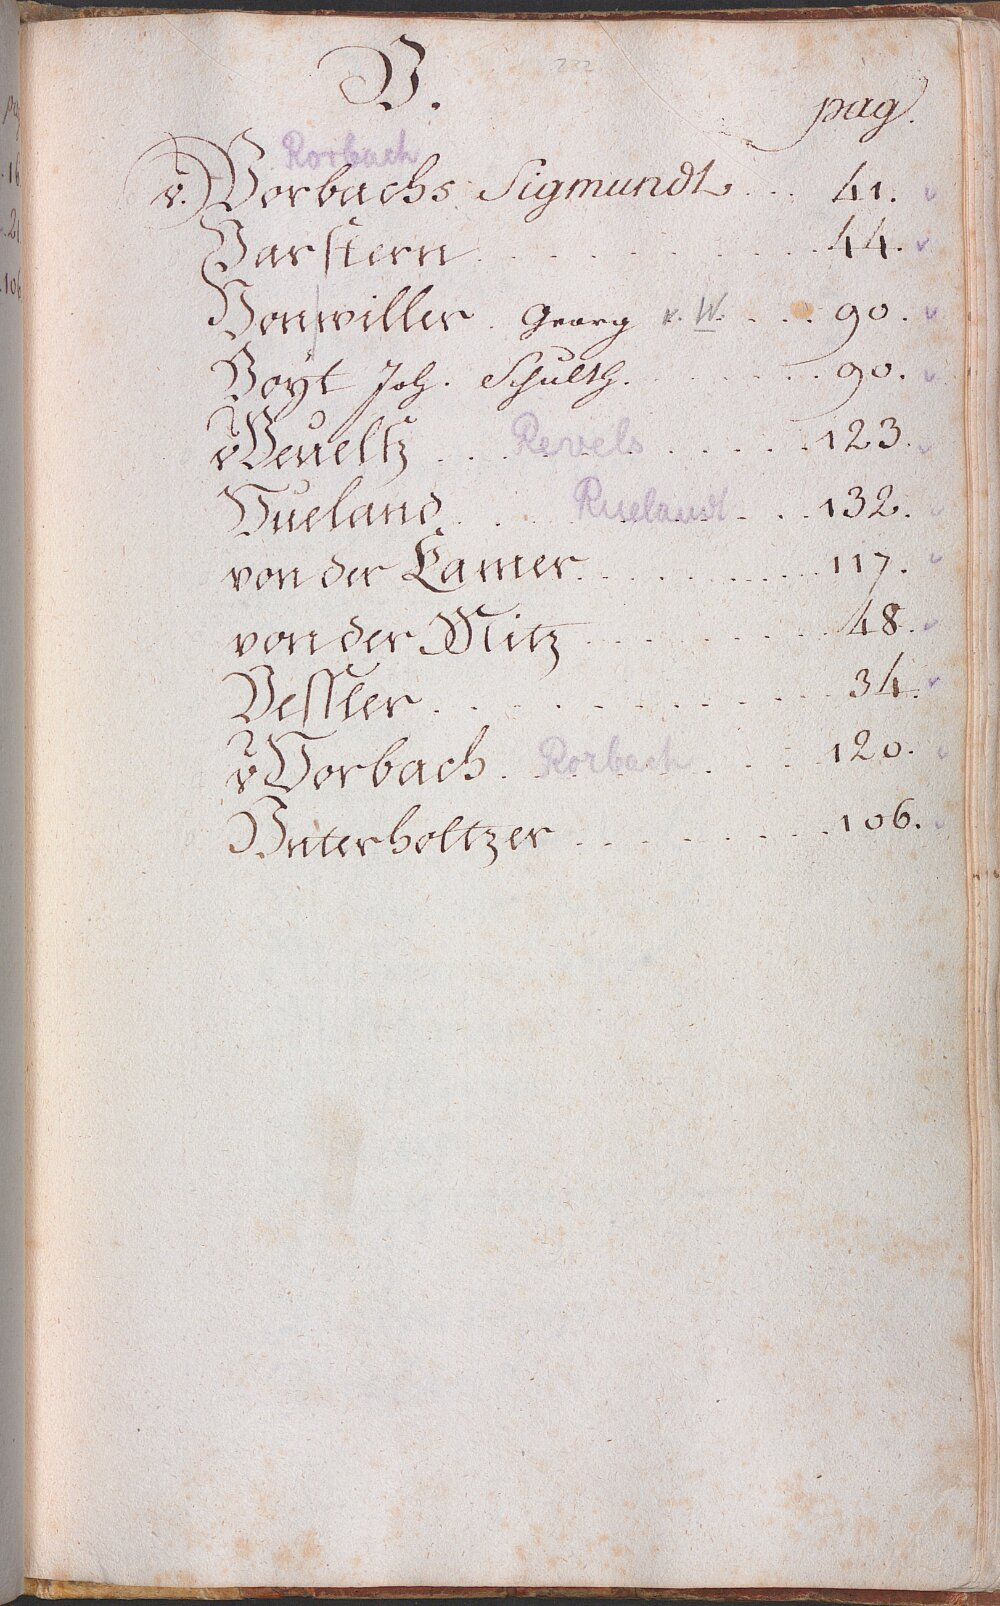 232
V.
pag.
Rorbach
v. Vorbachs Sigmundt ... 41.
Varstern ... 44.
Vonwiller. Georg v. W. ... 90.
Voyt Joh. Schulth. ... 90.
v Veueltz ... Revels ... 123.
Vueland ... Ruelandt ... 132.
von der Camer ... 117.
von der Mitz ... 48.
Vessler ... 34.
v Vorbach. Rorbach ... 120.
Vnterholtzer ... 106.